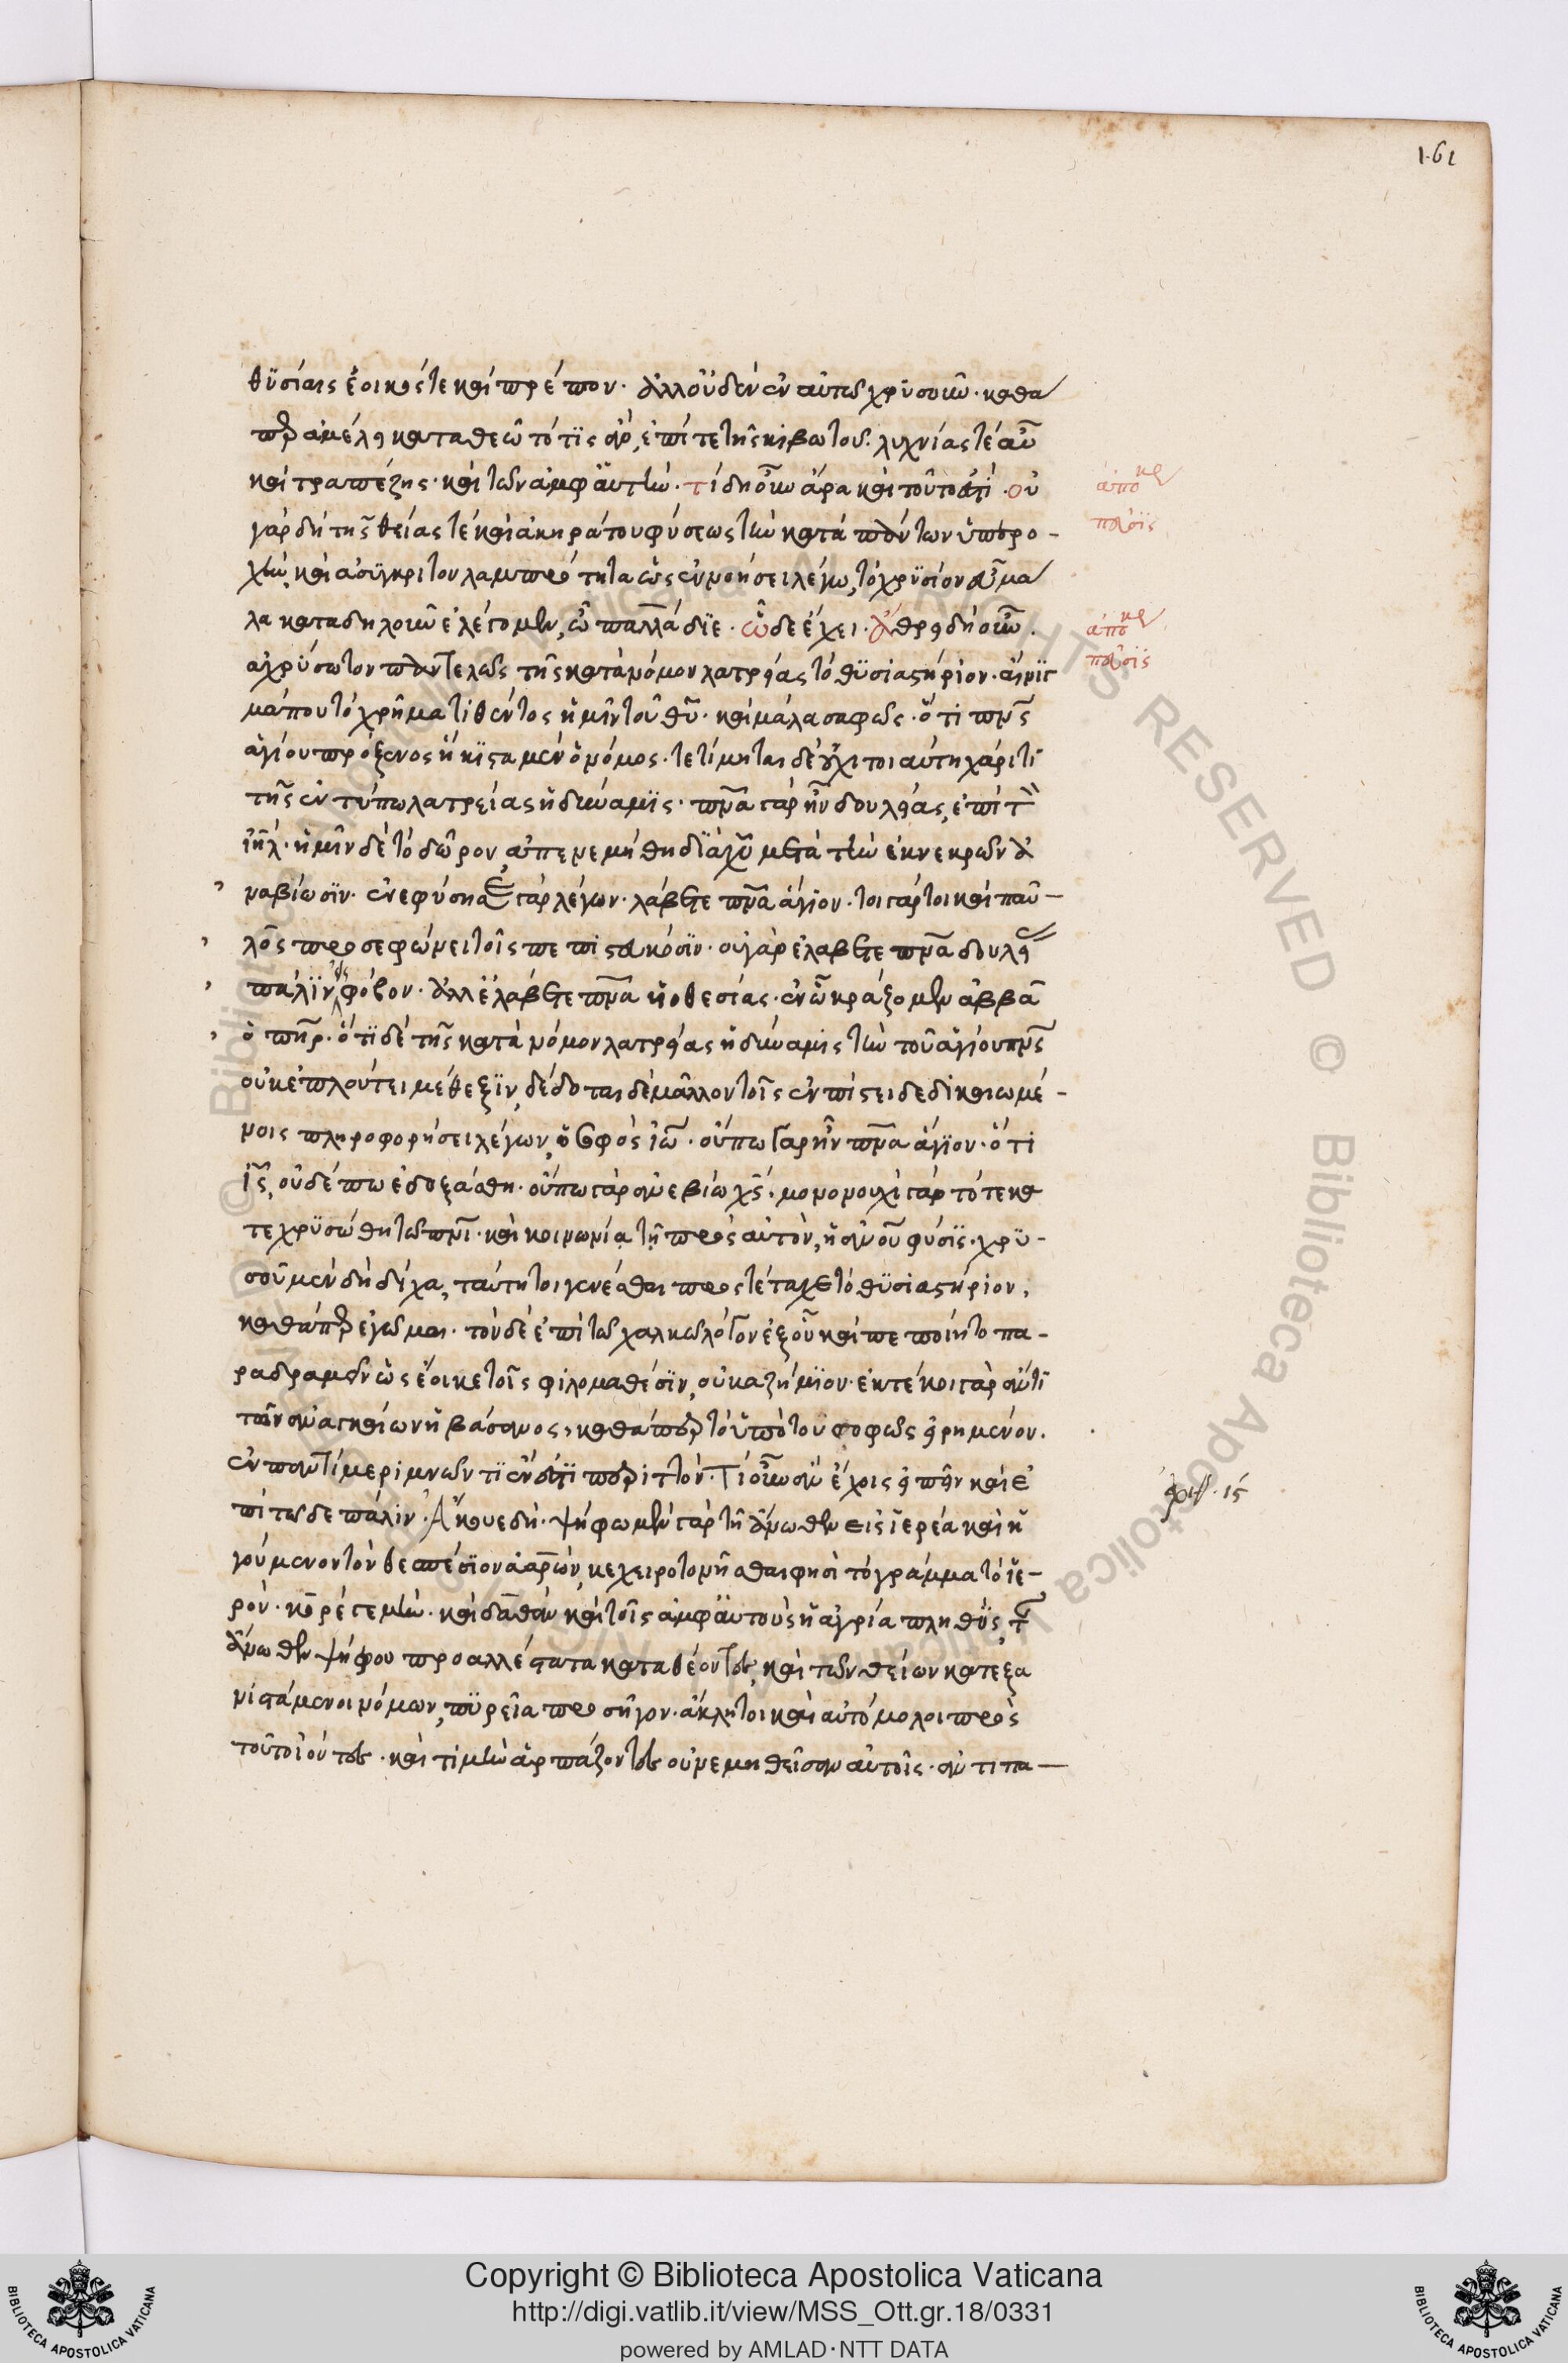 161
θϋσίαις ἐοικός τε καὶ πρέπον· ἀλλ οὐδὲν ἐν αὐτῶ χρϋσοῦν· καθα
περ ἀμέλει καταθεῶ τό τϊς ἂν, ἐπί τε τῆς κιβωτοῦ· λυχνίας τὲ αὖ
καὶ τραπέζης· καὶ τῶν ἀμφ αὐτήν· τί δὴ οὖν ἄρα καὶ τοῦτο ἐστί· οὐ
γὰρ δὴ τῆς θείας τὲ καὶ ἀκηράτου φύσεως τὴν κατὰ πάντων ὑπερο-
χὴν, καὶ ἀσύγκριτον λαμπρότητα ὡς ἐν νοήσει λέγω, τὸ χρϋσίον εὖ μα
λα καταδηλοῦν ἐλέγομεν, ὦ παλλάδϊε· ὧδε ἔχει· ἄθρει δὴ οὖν·
ἀχρύσωτον παντελῶς τῆς κατὰ νόμον λατρείας τὸ θϋσιαστήριον· αἴνϊγ
μά που τὸ χρῆμα τιθέντος ἡμῖν τοῦ θῦ· καὶ μάλα σαφῶς· ὅτι πνς
ἁγίου πρόξενος ἥκϊστα μὲν ὁ νόμος· τετίμηται δὲ οὐχὶ τοιαύτη χάριτι
τῆς ἐν τύπω λατρείας ἡ δύναμϊς· πνα γὰρ ἦν δουλείας, ἐπὶ τὸν
ιηλ· ἡμῖν δὲ τὸ δῶρον, ἀπενεμήθη διὰ χῦ μετὰ τὴν ἐκ νεκρῶν ἀ
ναβίωσϊν· ἐνεφύσησε γὰρ λέγων· λάβετε πνα ἅγϊον· τοιγάρτοι καὶ παῦ-
λος προσεφώνει τοῖς πεπιστευκόσϊν· οὐ γὰρ ἐλάβετε πνα δουλεί
πάλϊν εἰς φόβον· ἀλλ ἐλάβετε πνα υἱοθεσίας· ἐν ὧ κράζομεν ἀββᾶ
ὁ πηρ· ὅτϊ δὲ τῆς κατὰ νόμον λατρείας ἡ δύναμις τὴν τοῦ ἁγίου πνς
οὐκ ἐπλούτει μέθεξϊν, δέδοται δὲ μᾶλλον τοῖς ἐν πίστει δεδικαιωμέ-
νοις πληροφορήσει λέγων, ὁ σοφὸς ἰω· οὔπω γὰρ ἦν πνα ἅγϊον· ὅτι
ις, οὐδέπω ἐδοξάσθη· οὔπω γὰρ ἀνεβίω χς· μονονουχὶ γὰρ τότε κα
τεχρϋσώθη τῶ πνι· καὶ κοινωνία τῆ πρὸς αὐτὸν, ἡ ανου φύσϊς· χρϋ-
σοῦ μὲν δὴ δίχα, ταύτητοι γενέσθαι προστέταχε τὸ θϋσιαστήριον,
καθάπερ ἐγῶμαι· τὸν δέ ἐπὶ τῶ χαλκῶ λόγον ἐξ οὗ καὶ πεποίητο πα-
ραδραμεῖν ὡς ἔοικε τοῖς φιλομαθέσϊν, οὐκ ἀζήμϊον· ἐκτέκοι γὰρ ἄν τϊ
τῶν ἀναγκαίων ἡ βάσανος, καθάπερ τὸ ὑπό του σοφῶς εἰρημένον·
ἐν παντὶ μεριμνῶν τϊ ἔνεστϊ περιττόν· Τί οὖν ἂν ἔχοις εἰπεῖν καὶ ἐ
πὶ τῶδε πάλϊν· Ἄκουε δή· ψήφω μὲν γὰρ τῆ ἄνωθεν εἰς ἱερέα καὶ ἡ
γούμενον τὸν θεσπέσϊον ἀαρὼν, κεχειροτονῆσθαι φησὶ τὸ γράμμα τὸ ἱε-
ρόν· κορέ γε μὴν· καὶ δαθὰν καὶ τοῖς ἀμφ αὐτοὺς ἡ ἀγρία πληθὺς, τῆς
ἄνωθεν ψήφου προαλλέστατα καταθέοντες, καὶ τῶν θείων κατεξα
νιστάμενοι νόμων, πϋρεῖα προσῆγον· ἄκλητοι καὶ αὐτόμολοι πρὸς
τοῦτο ἰόντες· καὶ τιμὴν ἁρπάζοντες οὐ νεμηθεῖσαν αὐτοῖς· ἀντιπα-
ἀπὸ κε
παύσϊς
ἀπὸ κε
παύσϊς
ἀριθ· ις
Copyright © Biblioteca Apostolica Vaticana
http://digi.vatlib.it/view/MSS_Ott.gr.18/0331
powered by AMLAD·NTT DATA
BIBLIOTECA APOSTOLICA VATICANA
BIBLIOTECA APOSTOLICA VATICANA